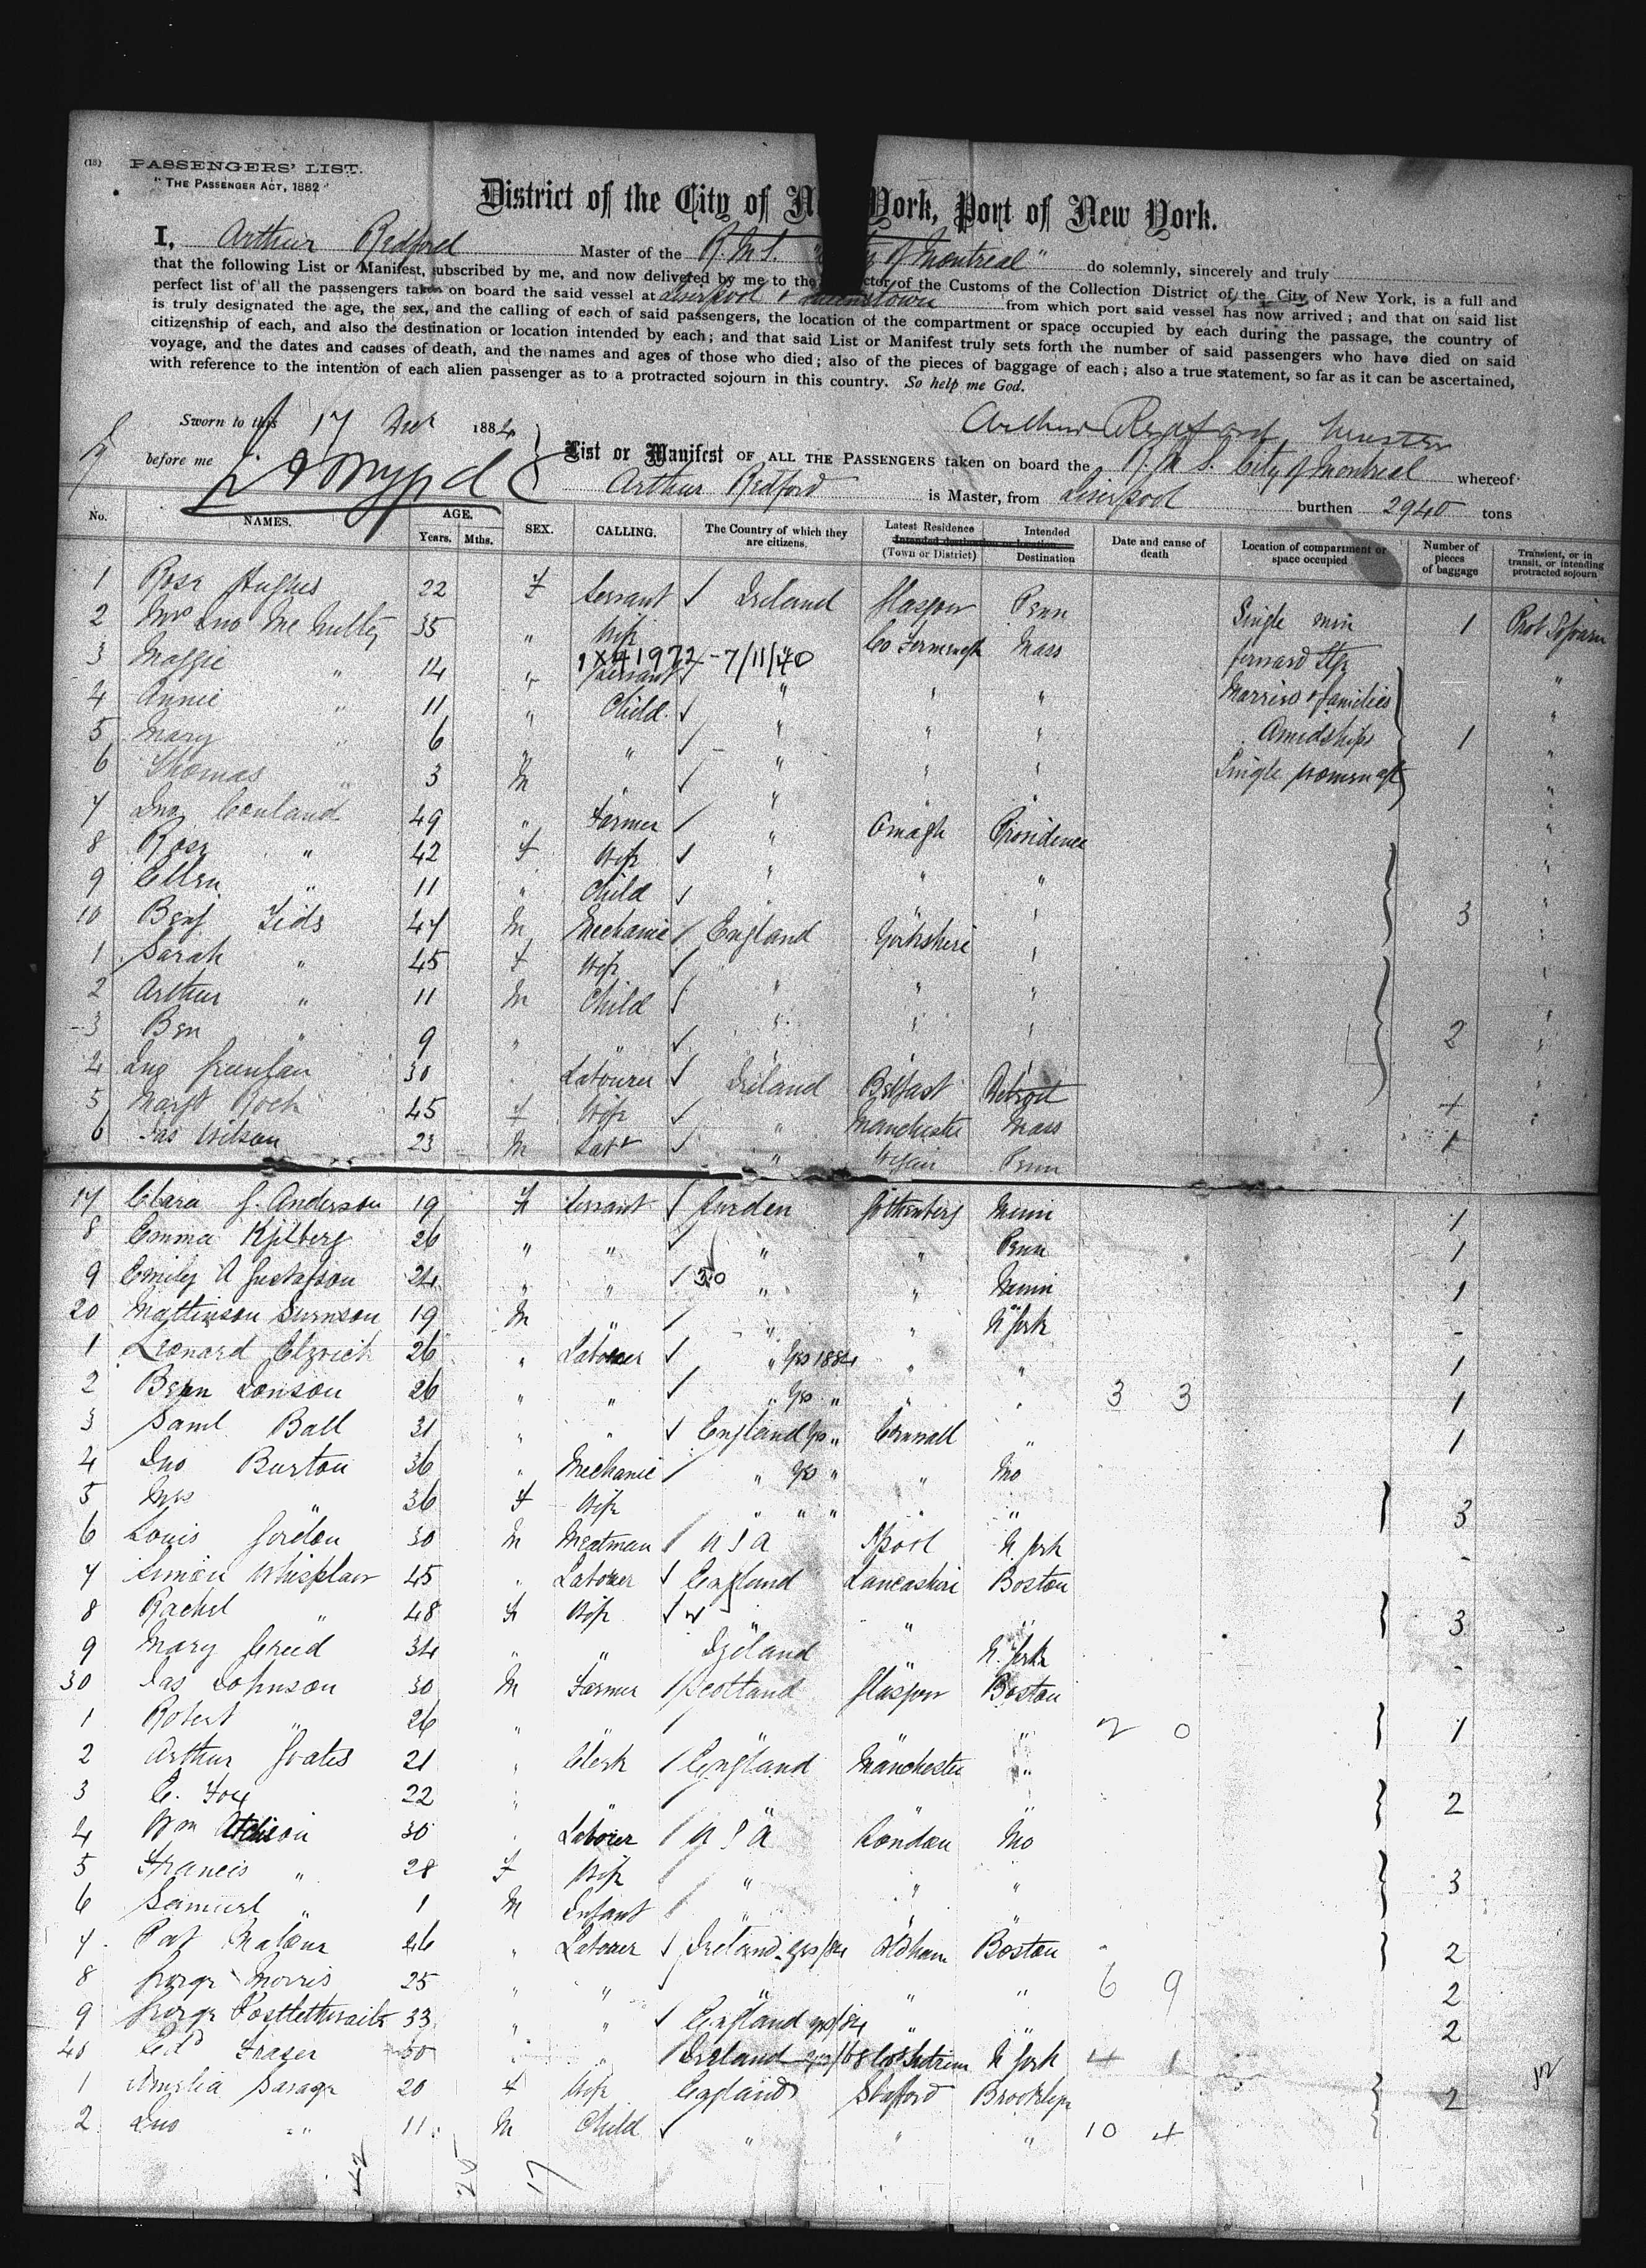 (18) PASSENGERS' LIST.
"THE PASSENGER ACT, 1882"
District of the City of New York, Port of New York.
I, Arthur Redford Master of the R.M.S. "City of Montreal" do solemnly, sincerely and truly
that the following List or Manifest, subscribed by me, and now delivered by me to the Collector of the Customs of the Collection District of the City of New York, is a full and
perfect list of all the passengers taken on board the said vessel at Liverpool & Queenstown from which port said vessel has now arrived; and that on said list
is truly designated the age, the sex, and the calling of each of said passengers, the location of the compartment or space occupied by each during the passage, the country of
citizenship of each, and also the destination or location intended by each; and that said List or Manifest truly sets forth the number of said passengers who have died on said
voyage, and the dates and causes of death, and the names and ages of those who died; also of the pieces of baggage of each; also a true statement, so far as it can be ascertained,
with reference to the intention of each alien passenger as to a protracted sojourn in this country. So help me God.
Arthur Redford, Master
Sworn to this 17 1884
before me
List or Manifest OF ALL THE PASSENGERS taken on board the R.M.S. City of Montreal whereof
Arthur Redford is Master, from Liverpool burthen 2940 tons
No. NAMES. AGE. Years. Mths. SEX. CALLING. The Country of which they are citizens. Latest Residence Intended destination or location (Town or District) Intended Destination Date and cause of death Location of compartment or space occupied Number of pieces of baggage Transient, or in transit, or intending protracted sojourn
1 Rose Hughes 22 F Servant ✓ Ireland Glasgow Penn Single men 1 Prot Sojourn
2 Mrs Jno McNulty 35 " Wife " Co Fermanagh Mass forward Stge
1X41972-7/11/40
3 Maggie " 14 " Servant ✓ " " " Married & families "
4 Annie " 11 " Child ✓ " " " Amidships "
5 Mary " 6 " " ✓ " " " Single women aft 1 "
6 Thomas " 3 M ✓ " " " "
7 Jno Conland 49 " Farmer ✓ " Omagh Providence "
8 Rose " 42 F Wife ✓ " " " "
9 Ellen " 11 " Child ✓ " " " 3 "
10 Benj 47 M Mechanic ✓ England Yorkshire " "
1 Sarah " 45 F Wife ✓ " " " "
2 Arthur " 11 M Child ✓ " " " "
3 Ben " 9 " " ✓ " " " 2 "
4 Jno 30 Labourer ✓ Ireland Belfast Detroit
5 Margt Roch 45 F Wife ✓ " Manchester Mass 1
6 Jas Wilson 23 M Labr ✓ " Wigan Penn 1
17 Clara G. Anderson 19 F Servant ✓ Sweden Gothenberg Minn 1
8 Emma Kjilberg 26 " " ✓ " " Penn 1
9 Emily A Gustafson 24 " " ✓ 30 " " Minn 1
20 Mattinson 19 M " ✓ " " N York -
1 Leonard 26 " Labourer ✓ " yrs 1884 " " 1
2 26 " " ✓ " yrs " " " 3 3 1
3 Saml Ball 31 " " ✓ England yrs " Cornwall " 1
4 Jno Burton 36 " Mechanic ✓ " yrs " " Mo
5 Mrs " 36 F Wife " " " " " 3
6 Louis Gordon 30 M Meatman ✓ U S A N. York -
7 Simon 45 " Labourer ✓ England Lancashire Boston
8 Rachel " 48 F Wife ✓ " " " 3
9 Mary Creed 34 " " Ireland " N. York -
30 Jas Johnson 30 M Farmer ✓ Scotland Glasgow Boston
1 Robert " 26 " ✓ " " " 2 0 1
2 Arthur 21 " Clerk ✓ England Manchester "
3 C. Fox 22 " " ✓ " " " 2
4 Wm Atchison 30 " Labourer ✓ U S A London Mo
5 Francis " 28 F Wife ✓ " " " 3
6 Samuel " 1 M Infant ✓ " " "
7 Pat Malone 26 " Labourer ✓ Ireland yrs/84 Oldham Boston 2
8 George Morris 25 " " ✓ " " " 6 9 2
9 George Postlethwaite 33 " " ✓ England yrs/84 " " 2
40 Ed Fraser 50 " " ✓ Ireland N York 4 1
1 Amelia Savage 20 F Wife England Brooklyn 2
2 Jno " 11 M Child ✓ " " " 10 4
42 17